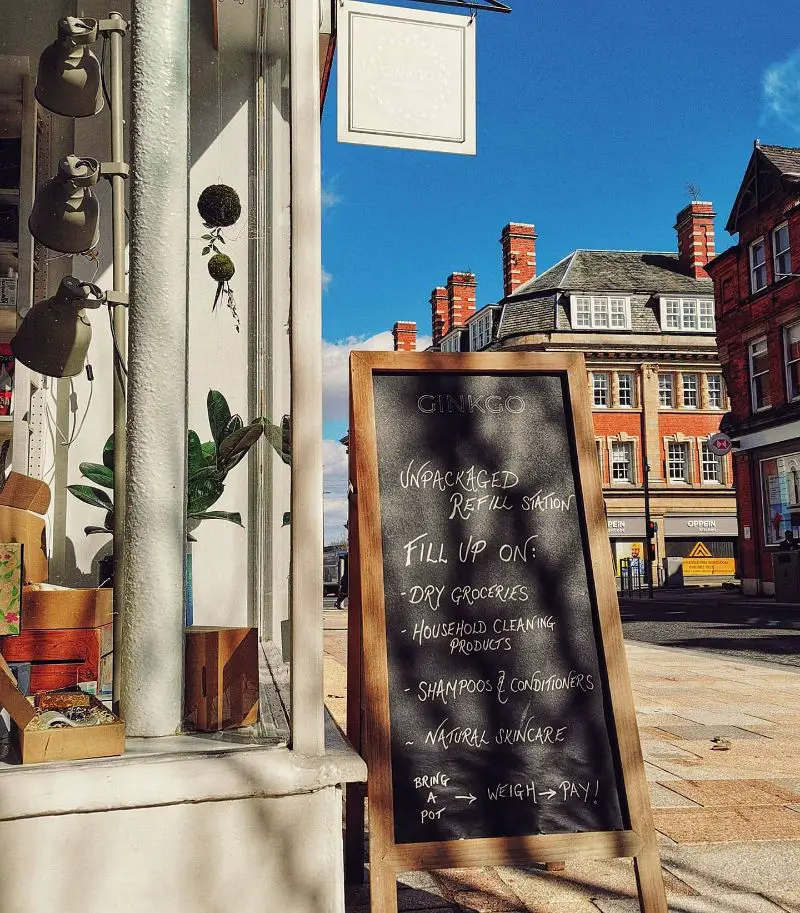 GINKGO
GINKGO
UNPACKAGED
REFILL STATION
FILL UP ON:
- DRY GROCERIES
- HOUSEHOLD CLEANING
PRODUCTS
- SHAMPOOS & CONDITIONERS
~ NATURAL SKINCARE
BRING
A
POT
→ WEIGH → PAY!
OPPEIN